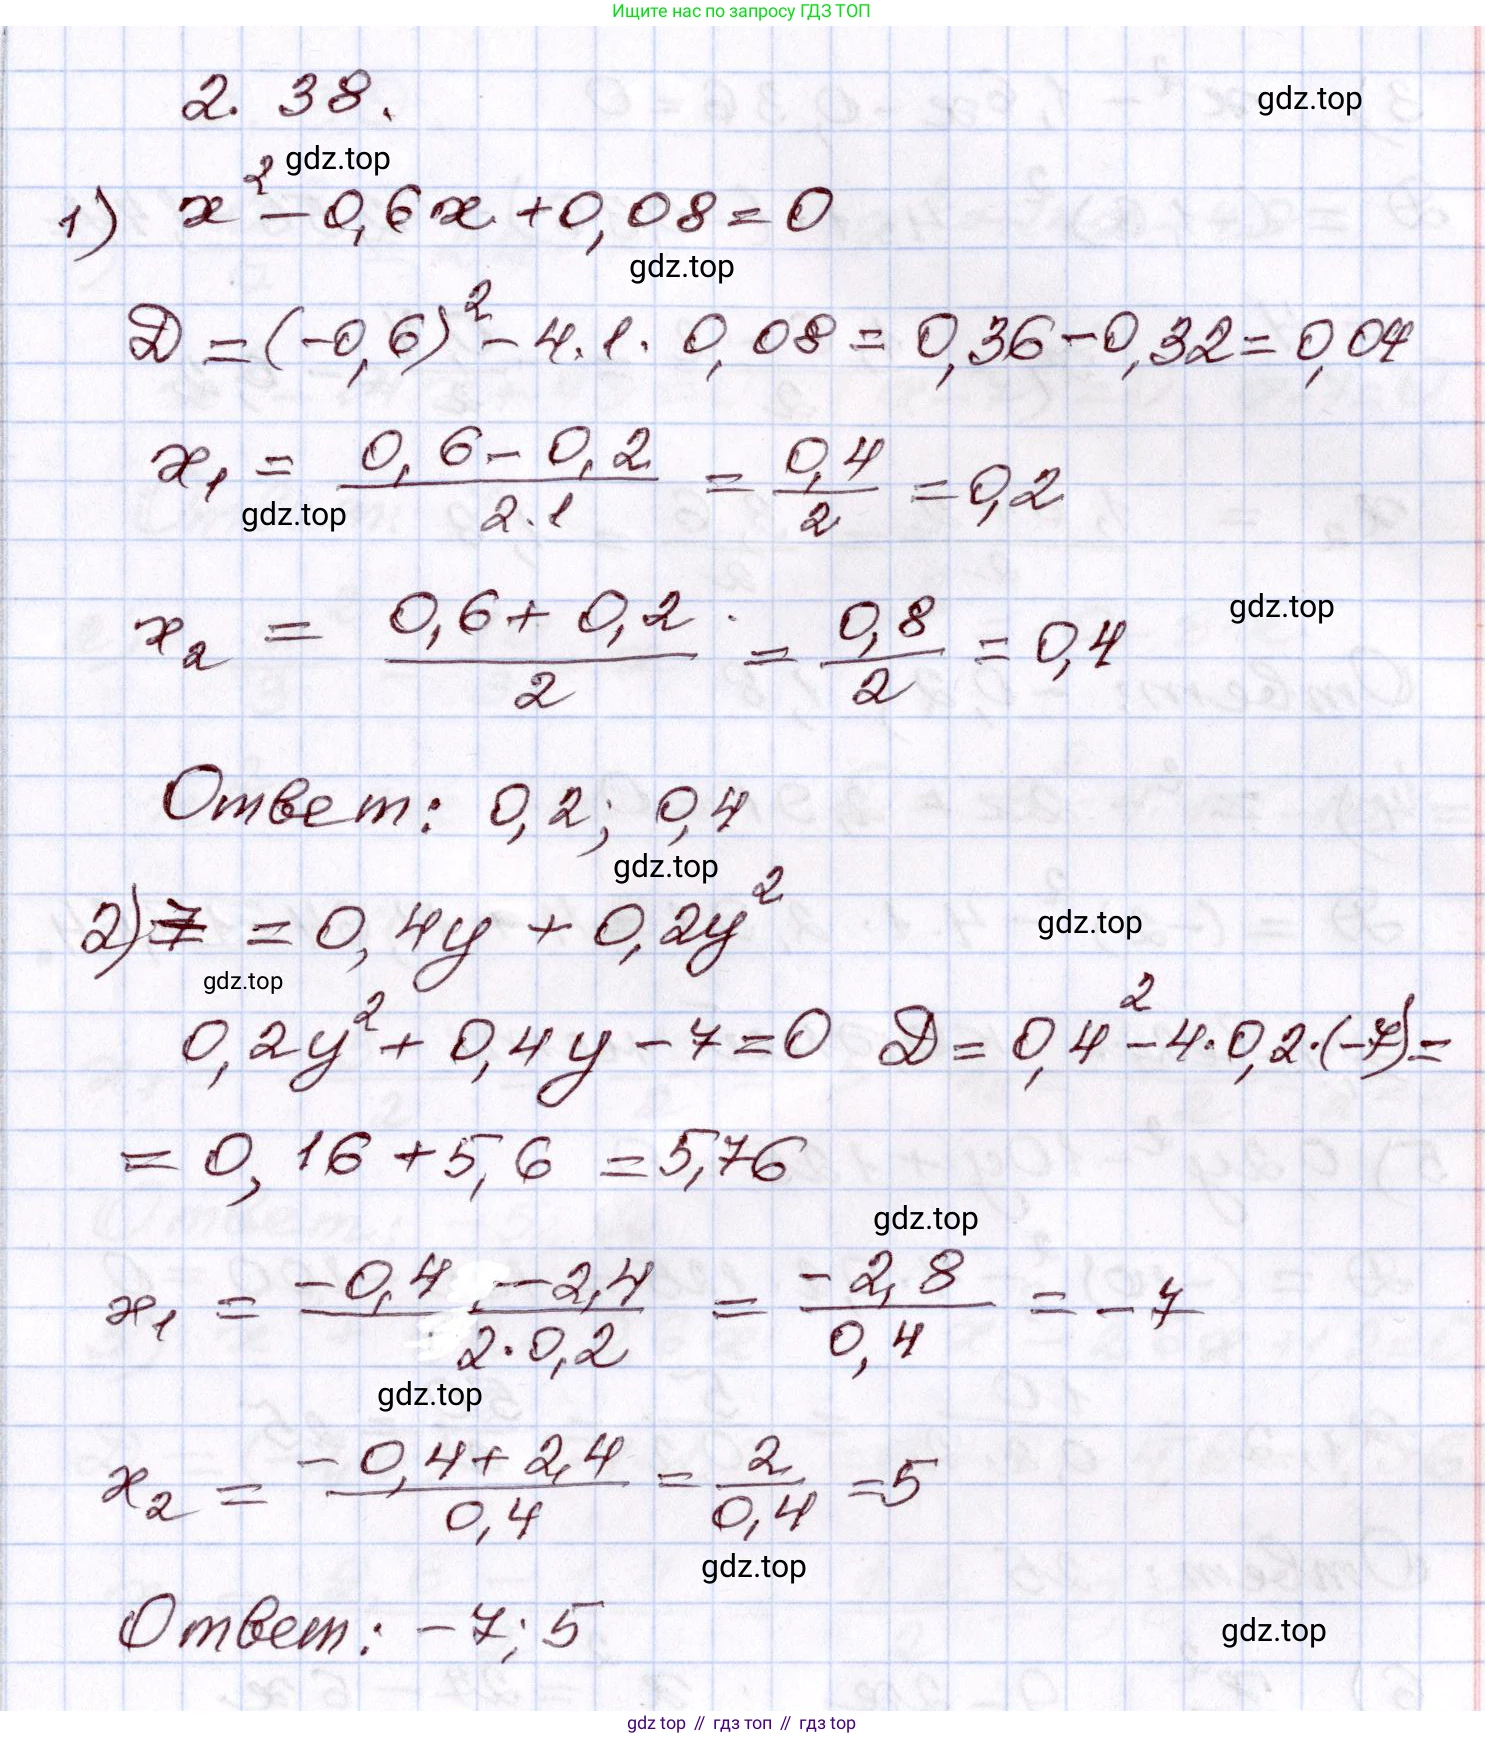 Ищите нас по запросу ГДЗ ТОП
2. 38.
gdz.top
gdz.top
1) x² - 0,6x + 0,08 = 0
gdz.top
D = (-0,6)² - 4·1·0,08 = 0,36 - 0,32 = 0,04
x₁ = (0,6 - 0,2)/(2·1) = 0,4/2 = 0,2
gdz.top
x₂ = (0,6 + 0,2)/2 = 0,8/2 = 0,4
gdz.top
Ответ: 0,2; 0,4
gdz.top
2) 7 = 0,4y + 0,2y²
gdz.top
gdz.top
0,2y² + 0,4y - 7 = 0 D = 0,4² - 4·0,2·(-7) =
= 0,16 + 5,6 = 5,76
gdz.top
x₁ = (-0,4 - 2,4)/(2·0,2) = -2,8/0,4 = -7
gdz.top
x₂ = (-0,4 + 2,4)/0,4 = 2/0,4 = 5
gdz.top
Ответ: -7; 5
gdz.top
gdz top // гдз топ // gdz top